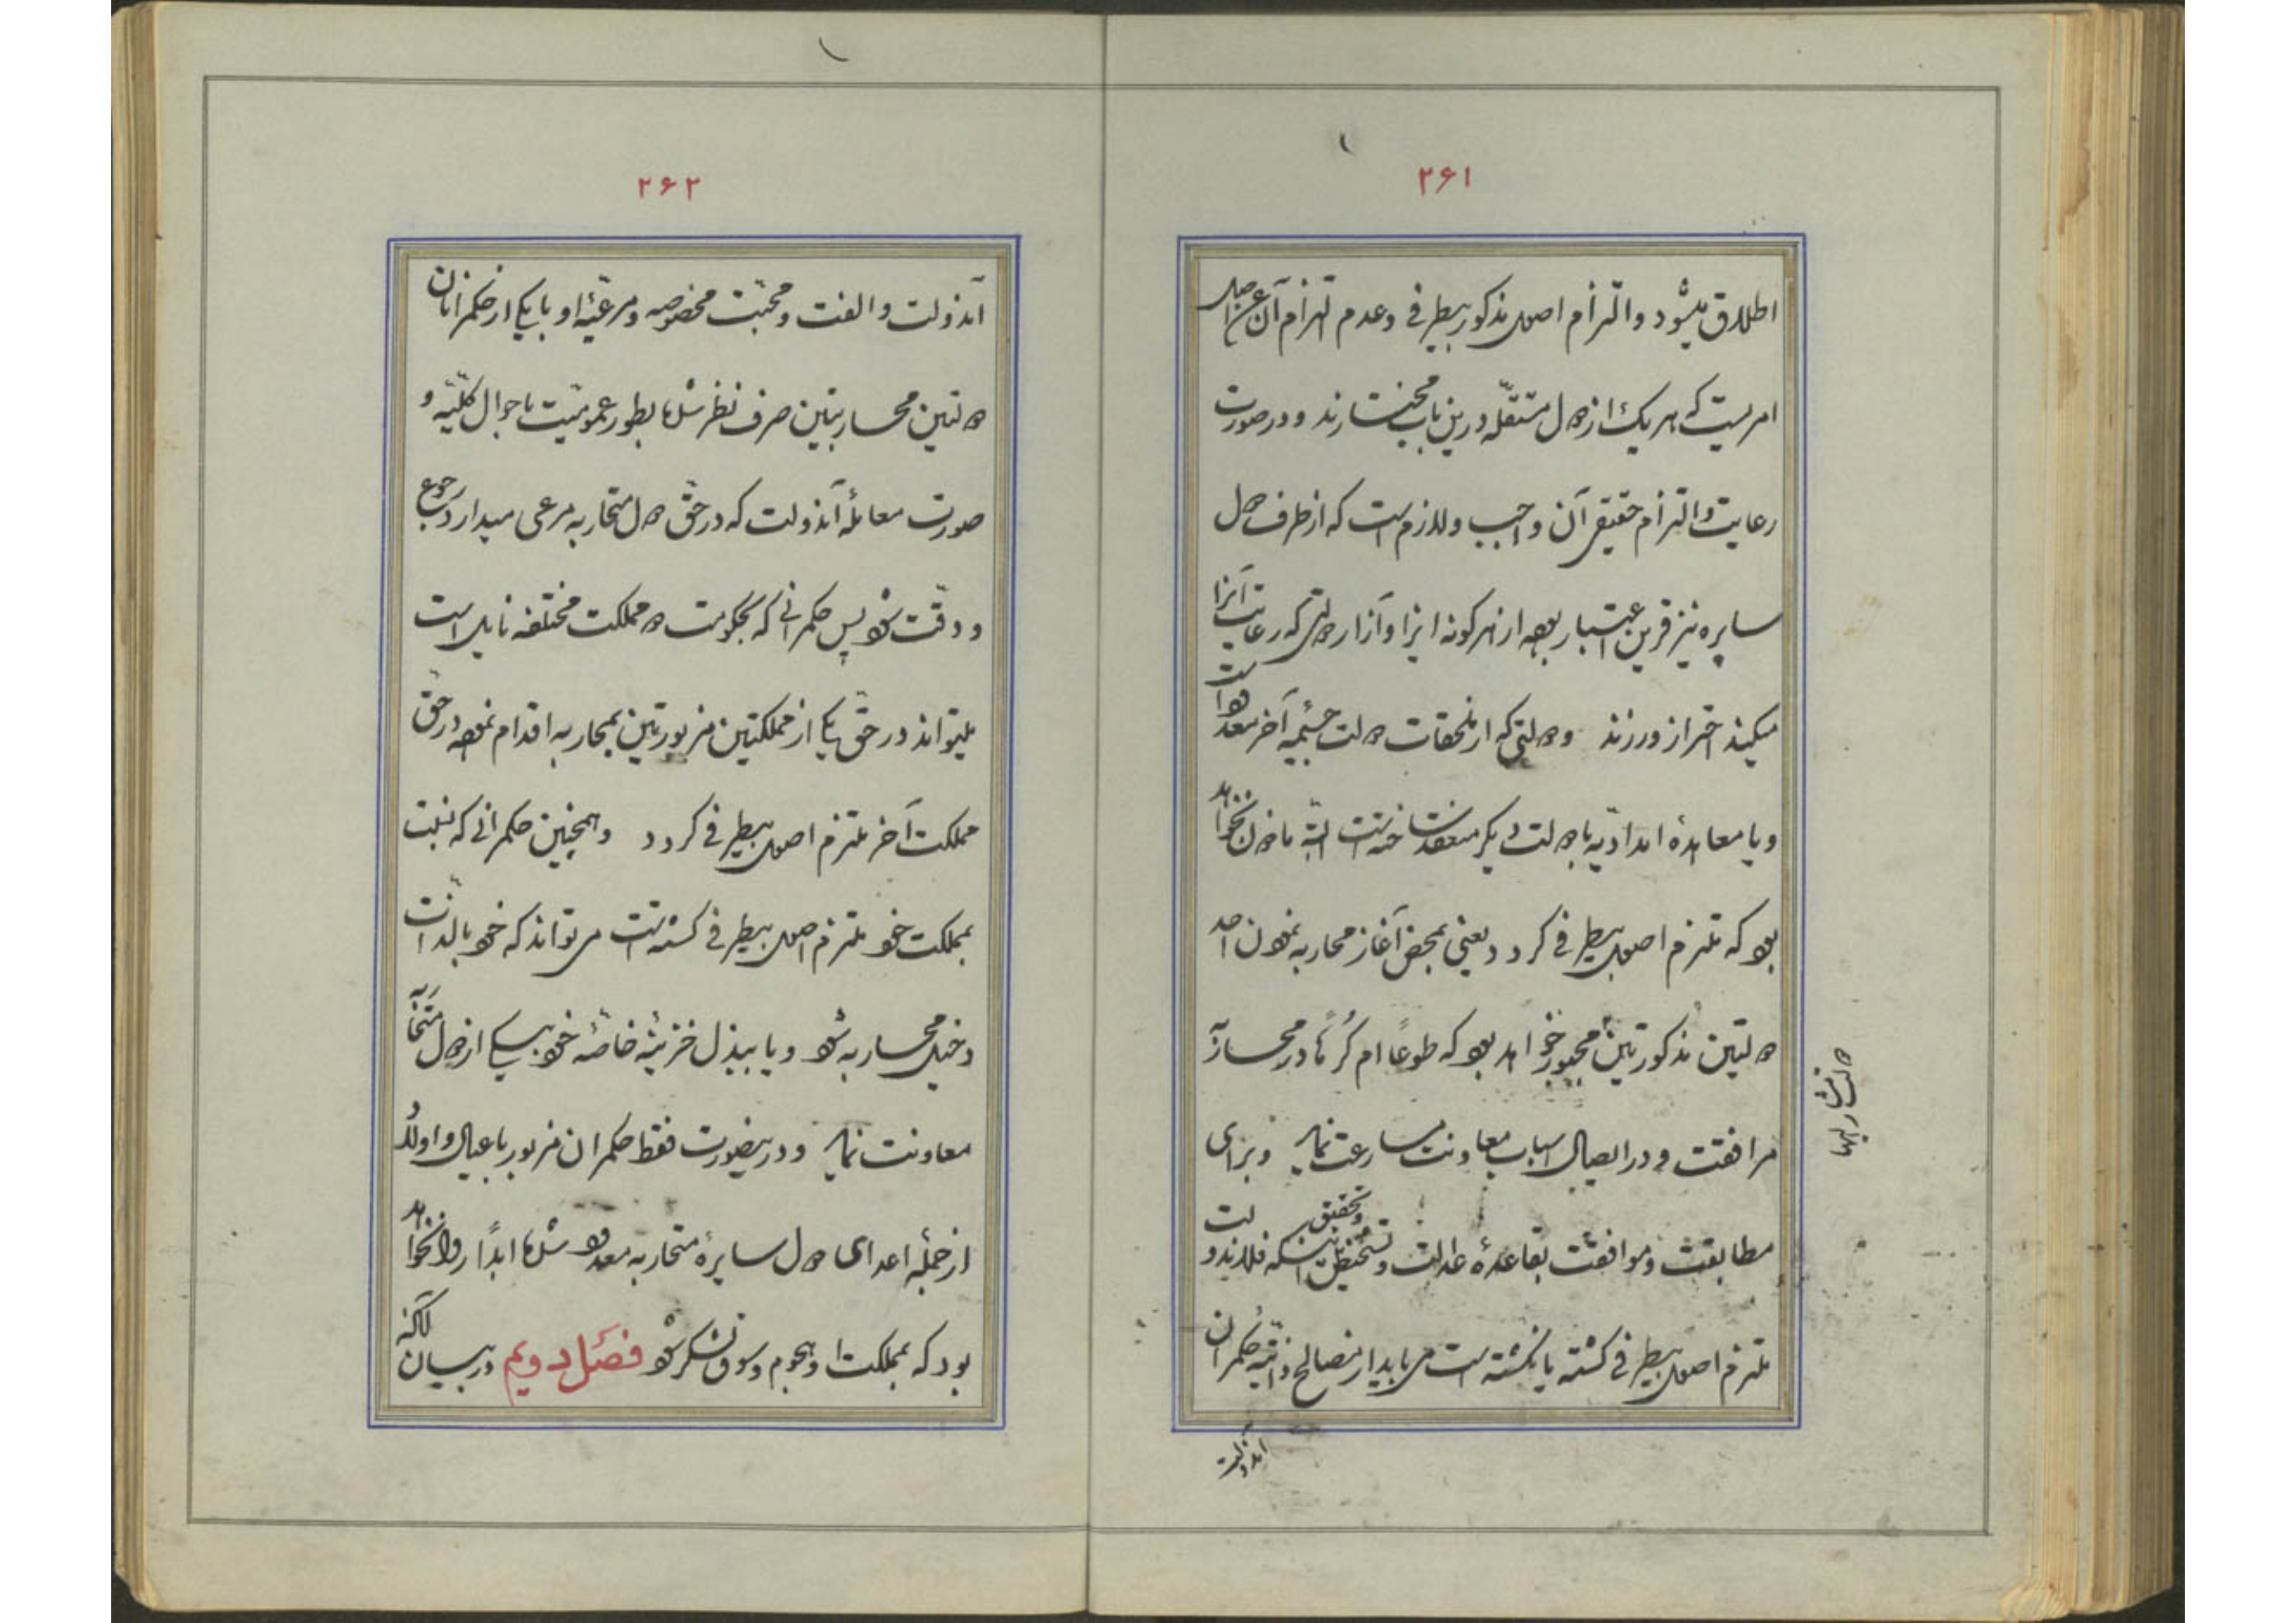 ۲۶۱
اطلاق میشود والتزام اصول مذکور بیطرفی وعدم التزام آن عن اصل
امریست که هر یک از دول مستقلّه درین باب مختارند ودرصورت
رعایت والتزام حقیقی آن واجب ولازم است که از طرف دول
سایره نیز قرین اعتبار بوده از هر کونه ایذا وآزار دولتی که رعایت آنرا
میکنند احتراز ورزند ودولتی که از ملحقات دولت جسیمه آخر معدود است
ویا معاهدهٔ امدادیّه با دولت دیکر منعقد ساخته است البتّه ماذون نخواهد
بود که ملتزم اصول بیطرفی کردد یعنی بمحض آغاز محاربه نمودن احد
دولتین مذکورتین مجبور خواهد بود که طوعًا ام کُرهًا در محاربهٔ
دولت مشار الیهما
مرافقت ودر ایصال اسباب معاونت مسارعت نماید وبرای
مطابقت وموافقت بقاعدهٔ عدالت وتشخیص وتحقیق اینکه فلان دولت
ملتزم اصول بیطرفی کشته یا نکشته است می باید از مصالح ذاتیّه حکمران
آندولت
۲۶۲
آندولت والفت ومحبّت مخصوصه ومرعیّهٔ او با یکی از حکمرانان
دولتین محاربتین صرف نظر شده بطور عمومیّت باحوال کلّیّه و
صورت معاملهٔ آندولت که در حقّ دول متحاربه مرعی میدارد رجوع
ودقّت شود پس حکمرانی که بحکومت دو مملکت مختلفه نایل است
میتواند در حقّ یکی از مملکتین مزبورتین بمحاربه اقدام نموده درحقّ
مملکت آخر ملتزم اصول بیطرفی کردد وهمچنین حکمرانی که نسبت
بمملکت خود ملتزم اصول بیطرفی کشته است می تواند که خود بالذّات
دخیل محاربه شود ویا ببذل خزینهٔ خاصّه خود بیکی از دول متحاربه
معاونت نماید ودرینصورت فقط حکمران مزبور با عیال واولاد
از جمله اعدای دول سایرهٔ متحاربه معدود شده ابدًا روا نخواهد
بود که بمملکت او هجوم وسوق لشکر شود فصل دویم در بیان آنکه